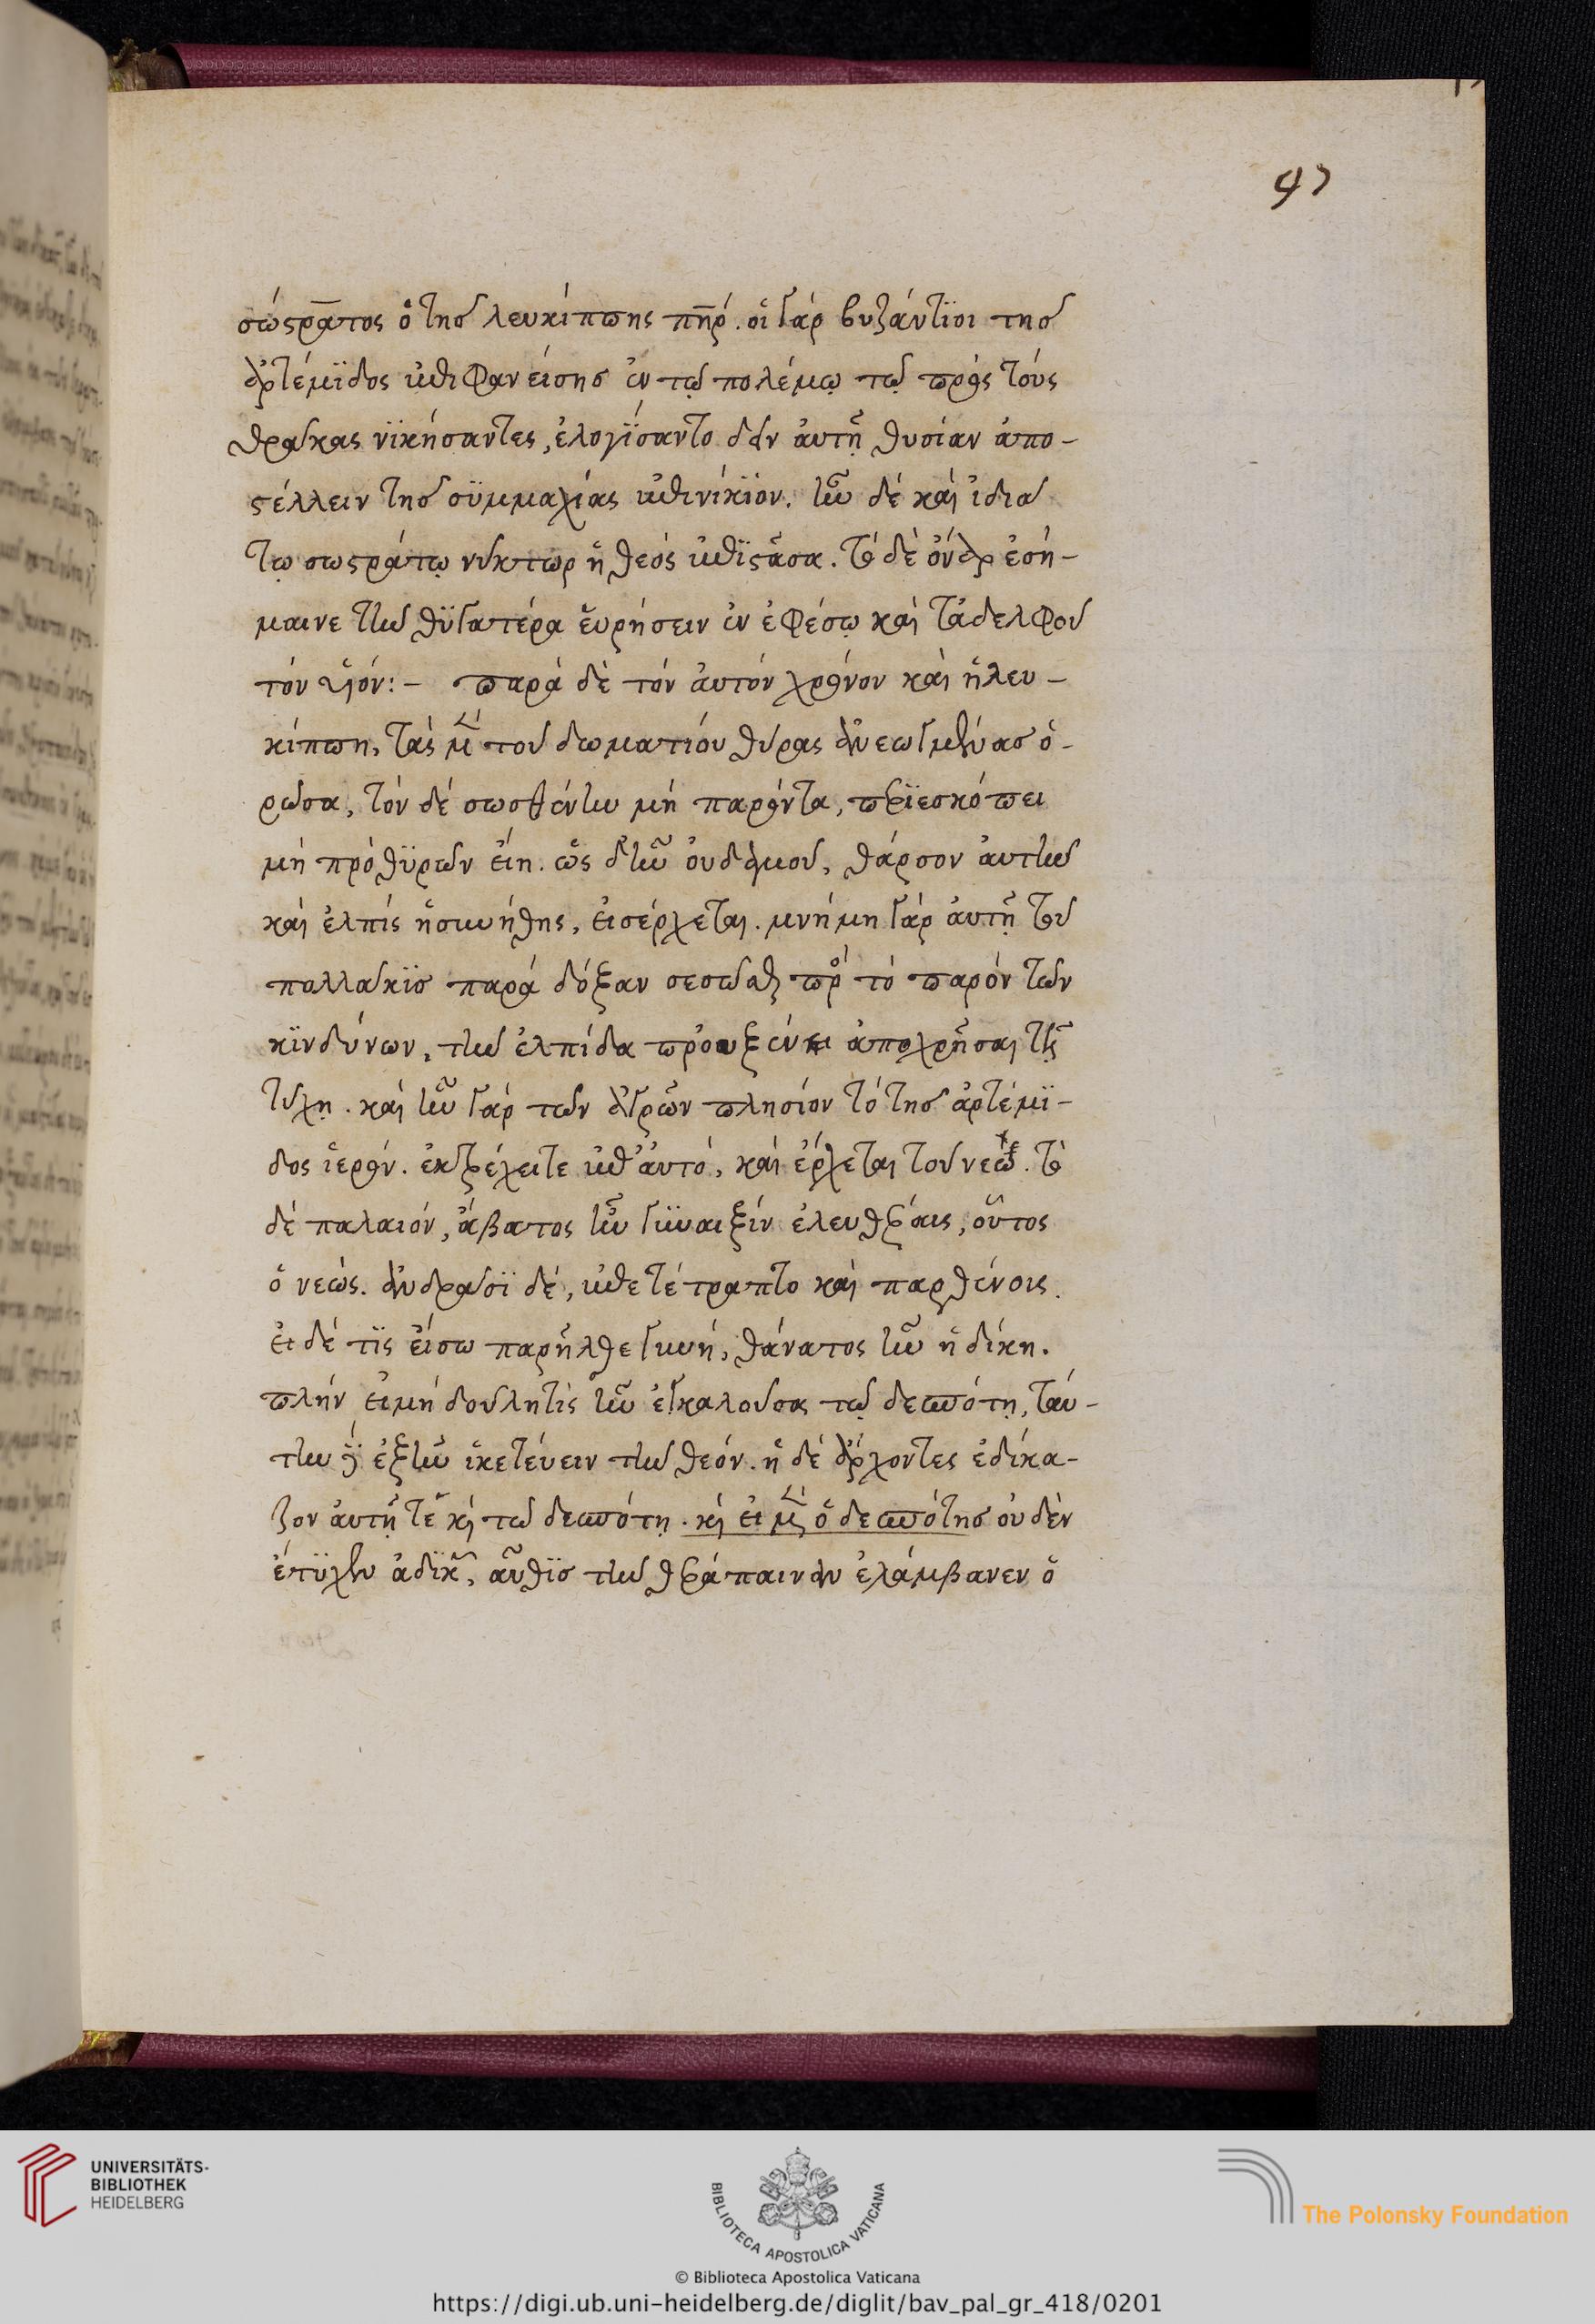 97
σώστρατος ὁ τῆσ λευκίππης πη̅ρ́. οἱ γὰρ βυζάντϊοι τῆσ
ἀρτέμϊδος ἐπιφανείσησ ἐν τῷ πολέμῳ τῷ πρὸς τοὺς
θρᾶκας νϊκήσαντες, ἐλογΐσαντο δεῖν ἀυτῇ θυσίαν ἀπο-
στέλλειν τῆσ σϋμμαχίας ἐπινίκϊον. ἦν δὲ καὶ ἰδία
τῳ σωστράτῳ νύκτωρ ἡ θεὸς ἐπϊστᾶσα. τὸ δὲ ὄναρ ἐσή-
μαινε τὴν θϋγατέρα ἑυρήσειν ἐν ἐφέσῳ καὶ τἀδελφοῦ
τὸν ὑιόν:- παρὰ δὲ τὸν ἀυτὸν χρόνον καὶ ἡ λευ-
κίππη, τὰς μὲν τοῦ δωματίου θύρας ἀνεωγμένασ ὁ-
ρῶσα, τὸν δὲ σωσθένην μὴ παρόντα, περϊεσκόπει
μὴ πρὸ θϋρῶν ἔιη. ὡς δ' ἦν ὀυδαμοῦ, θάρσον ἀυτὴν
καὶ ἐλπὶς ἡ συνήθης, ἐισέρχεται. μνήμη γὰρ ἀυτῇ τοῦ
πολλάκϊσ παρὰ δόξαν σεσῶσθαι πρὸ τὸ παρὸν τῶν
κϊνδύνων, τὴν ἐλπίδα προυξένει ἀποχρῆσαι τῇ
τύχῃ. καὶ ἦν γὰρ τῶν ἀγρῶν πλησίον τὸ τῆσ ἀρτέμϊ-
δος ἱερόν. ἐκτρέχει τε ἐπ' ἀυτὸ, καὶ ἔρχεται τοῦ νεὼ. τὸ
δὲ παλαιὸν, ἄβατος ἦν γϋναιξὶν ἐλευθέραις, οὗτος
ὁ νεώς. ἀνδράσϊ δὲ, ἐπετέτραπτο καὶ παρθένοις.
ἐι δέ τϊς ἔισω παρῆλθε γυνὴ, θάνατος ἦν ἡ δίκη.
πλὴν ἐι μὴ δούλη τὶς ἦν ἐγκαλοῦσα τῷ δεσπότῃ, ταύ-
τῃ δὲ ἐξῆν ἱκετέυειν τὴν θεόν. ἡ δὲ ἄρχοντες ἐδίκα-
ζον ἀυτῇ τὲ κὶ τῶ δεσπότῃ. κὶ ἐι μὲν ὁ δεσπότησ ὀυδὲν
ἔτϋχεν ἀδϊκῶν, αὖθϊσ τὴν θεράπαιναν ἐλάμβανεν ὁ
UNIVERSITÄTS-
BIBLIOTHEK
HEIDELBERG
BIBLIOTECA APOSTOLICA VATICANA
The Polonsky Foundation
© Biblioteca Apostolica Vaticana
https://digi.ub.uni-heidelberg.de/diglit/bav_pal_gr_418/0201